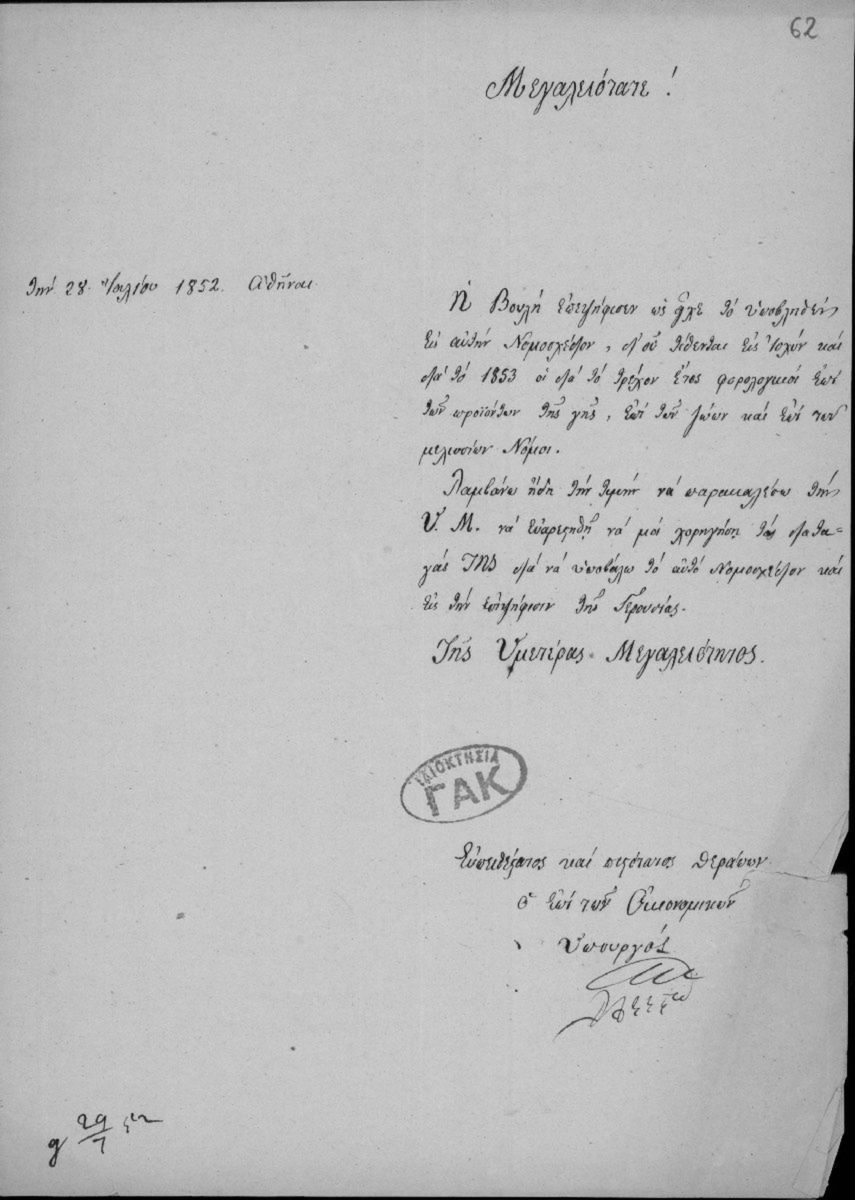 62
Μεγαλειότατε!
τὴν 28 Ἰουλίου 1852. Ἀθῆναι
Ἡ Βουλή ἐπεψήφισεν ὡς εἶχε τό ὑποβληθέν
εἰς αὐτήν Νομοσχέδιον, δι' οὗ τίθενται εἰς ἰσχύν καί
διά τό 1853 οἱ διά τό τρέχον ἔτος φορολογικοί ἐπί
τῶν προϊόντων τῆς γῆς, ἐπί τῶν ζώων καί ἐπί τῶν
μελισσίων Νόμοι.
Λαμβάνω ἤδη τήν τιμήν νά παρακαλέσω τήν
Υ. Μ. νά εὐαρεστηθῇ νά μοί χορηγήσῃ τάς διατα-
γάς ΤΗΣ διά νά ὑποβάλω τό αὐτό Νομοσχέδιον καί
εἰς τήν ἐπιψήφισιν τῆς Γερουσίας.
Τῆς Ὑμετέρας Μεγαλειότητος.
ΙΔΙΟΚΤΗΣΙΑ
ΓΑΚ
Εὐπειθέστατος καί πιστότατος θεράπων
ὁ ἐπί τῶν Οἰκονομικῶν
Ὑπουργός
29/7 52